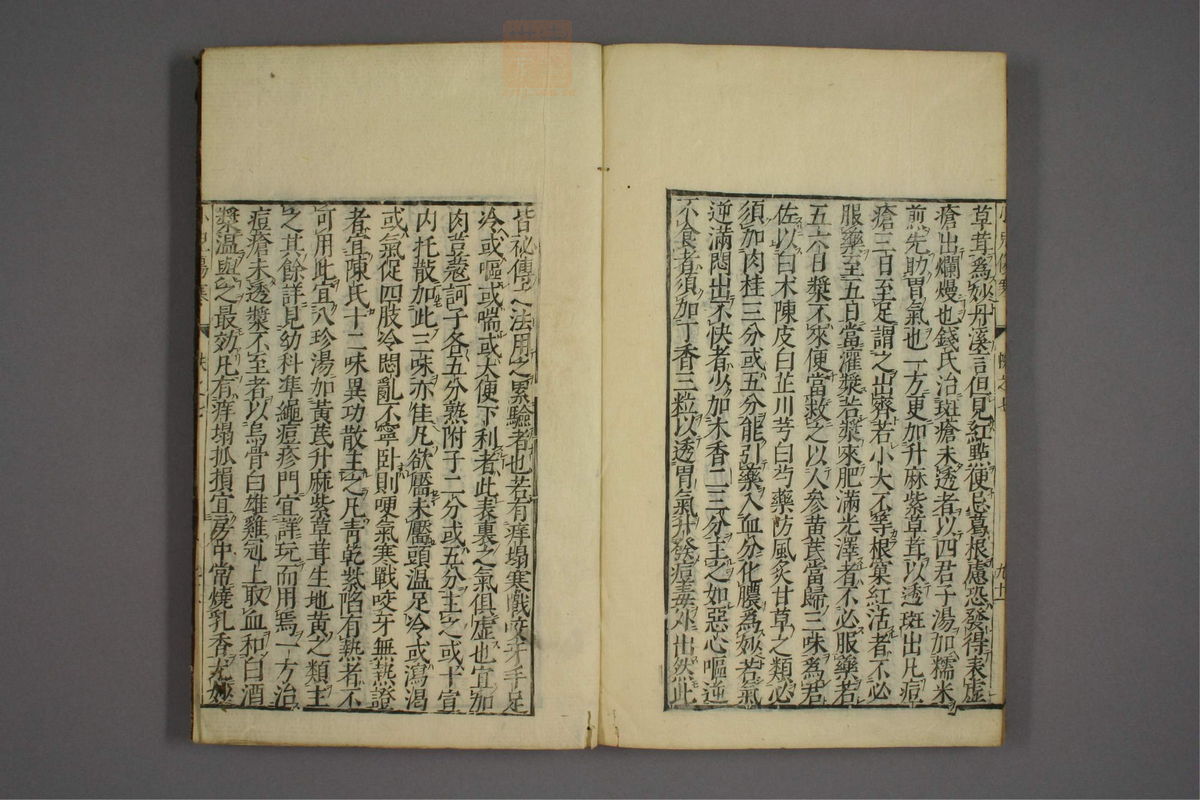 草茸爲妙丹溪言但見紅點便忌葛根慮恐發得表虛
瘡出爛熳也錢氏治斑瘡未透者以四君子湯加糯米
煎先助胃氣也一方更加升麻紫草茸以透斑出凡痘
瘡三日至足謂之出齊若小大不等根窠紅活者不必
服藥至五日當灌漿若漿來肥滿光澤者不必服藥若
五六日漿不來便當救之以人參黃芪當歸三味爲君
佐以白术陳皮白芷川芎白芍藥防風炙甘草之類必
須加肉桂三分或五分能引藥入血分化膿爲妙若氣
逆滿悶出不快者少加木香二三分主之如惡心嘔逆
不食者須加丁香三粒以透胃氣升發痘毒外出然此
皆祕傳之法用之累驗者也若有痒塌寒戰咬牙手足
冷或嘔或喘或大便下利者此表裏之氣俱虛也宜加
肉荳蔲訶子各五分熟附子二分或五分主之或十宣
內托散加此三味亦佳凡欲靨未靨頭溫足冷或瀉渴
或氣促四肢冷悶亂不寧臥則哽氣寒戰咬牙無熱證
者宜陳氏十二味異功散主之凡靑乾紫陷有熱者不
可用此宜八珍湯加黃芪升麻紫草茸生地黃之類主
之其餘詳見幼科準繩痘疹門宜詳玩而用焉一方治
痘瘡未透漿不至者以烏骨白雄雞冠上取血和白酒
漿溫與之最効凡有痒塌抓損宜房中常燒乳香尤妙